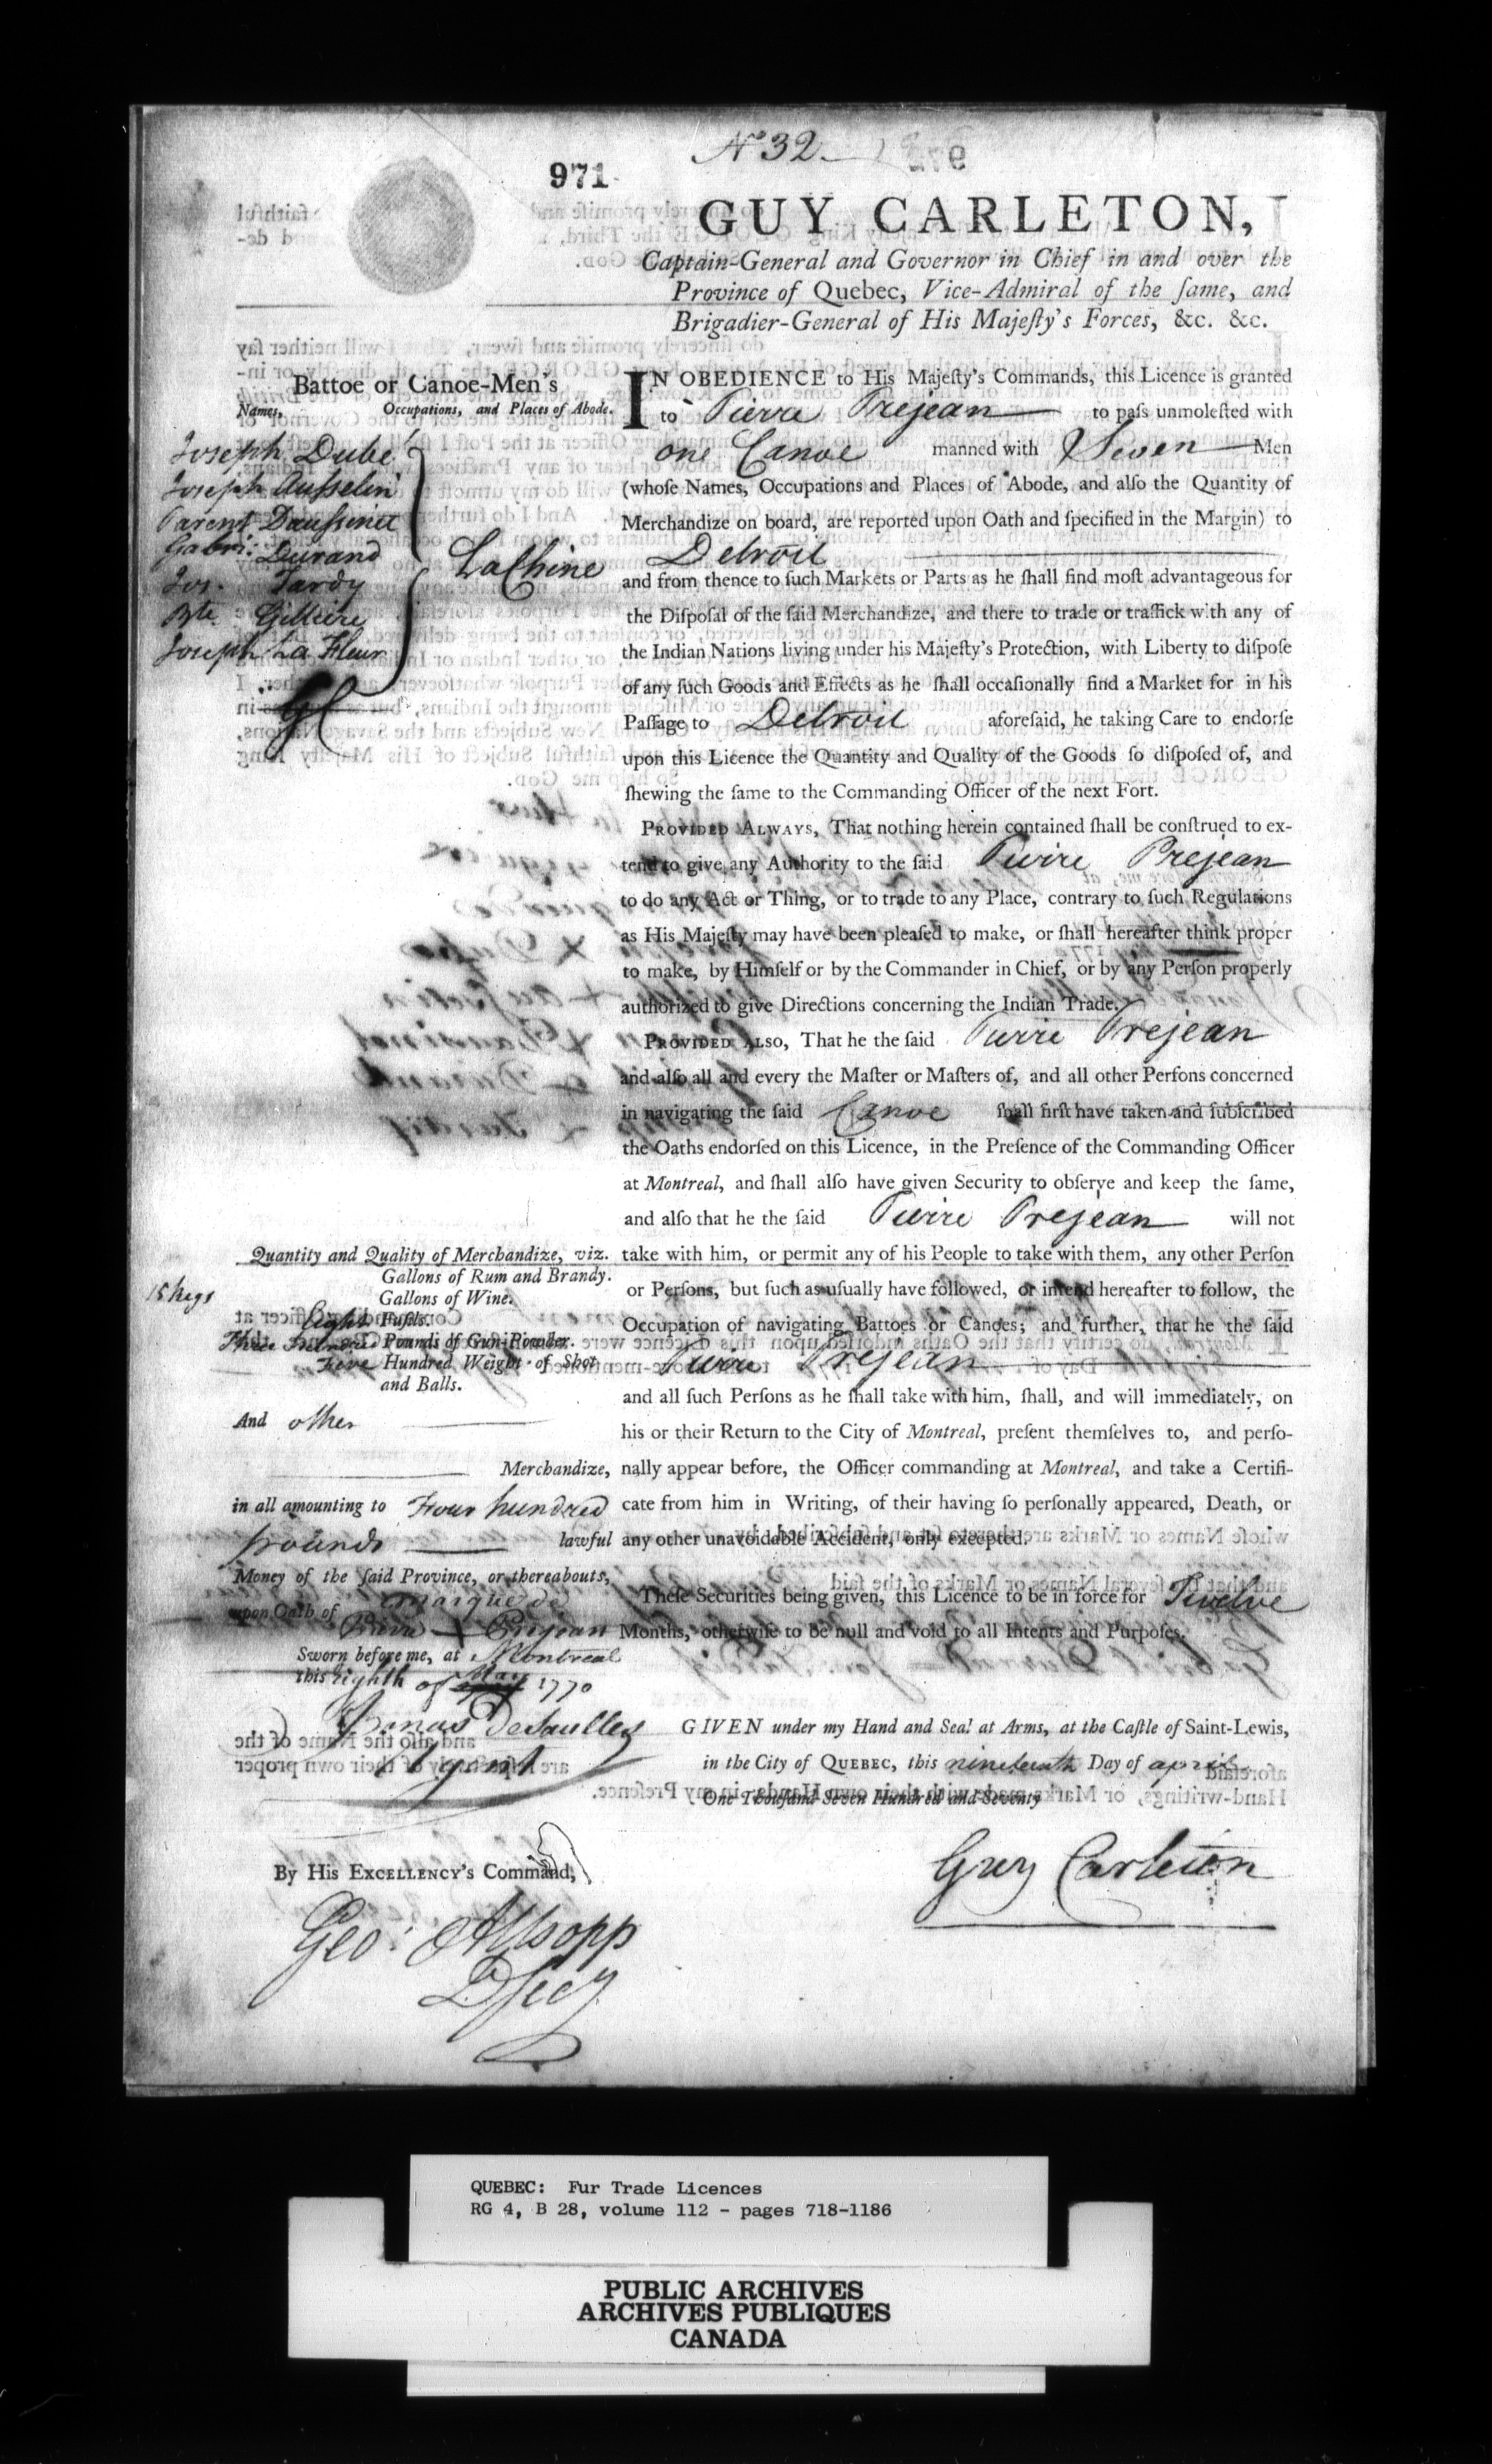 Nº 32
971
GUY CARLETON,
Captain-General and Governor in Chief in and over the
Province of Quebec, Vice-Admiral of the ſame, and
Brigadier-General of His Majeſty's Forces, &c. &c.
Battoe or Canoe-Men's
Names, Occupations, and Places of Abode.
Joseph Dube
Joseph Ausselin
Parent Daussinet
Gabri: Durand
Jos. Tardy
Bte.
Joseph La Fleur
LaChine
GC
IN OBEDIENCE to His Majeſty's Commands, this Licence is granted
to Pierre Prejean to paſs unmoleſted with
one Canoe manned with Seven Men
(whoſe Names, Occupations and Places of Abode, and alſo the Quantity of
Merchandize on board, are reported upon Oath and ſpecified in the Margin) to
Detroit
and from thence to ſuch Markets or Parts as he ſhall find moſt advantageous for
the Diſpoſal of the ſaid Merchandize, and there to trade or traffick with any of
the Indian Nations living under his Majeſty's Protection, with Liberty to diſpoſe
of any ſuch Goods and Effects as he ſhall occaſionally find a Market for in his
Paſſage to Detroit aforeſaid, he taking Care to endorſe
upon this Licence the Quantity and Quality of the Goods ſo diſpoſed of, and
ſhewing the ſame to the Commanding Officer of the next Fort.
PROVIDED ALWAYS, That nothing herein contained ſhall be conſtrued to ex-
tend to give any Authority to the ſaid Pierre Prejean
to do any Act or Thing, or to trade to any Place, contrary to ſuch Regulations
as His Majeſty may have been pleaſed to make, or ſhall hereafter think proper
to make, by Himſelf or by the Commander in Chief, or by any Perſon properly
authorized to give Directions concerning the Indian Trade.
PROVIDED ALSO, That he the ſaid Pierre Prejean
and alſo all and every the Maſter or Maſters of, and all other Perſons concerned
in navigating the ſaid Canoe ſhall firſt have taken and ſubſcribed
the Oaths endorſed on this Licence, in the Preſence of the Commanding Officer
at Montreal, and ſhall alſo have given Security to obſerve and keep the ſame,
and alſo that he the ſaid Pierre Prejean will not
take with him, or permit any of his People to take with them, any other Perſon
or Perſons, but ſuch as uſually have followed, or intend hereafter to follow, the
Occupation of navigating Battoes or Canoes; and further, that he the ſaid
Pierre Prejean
and all ſuch Perſons as he ſhall take with him, ſhall, and will immediately, on
his or their Return to the City of Montreal, preſent themſelves to, and perſo-
nally appear before, the Officer commanding at Montreal, and take a Certifi-
cate from him in Writing, of their having ſo perſonally appeared, Death, or
any other unavoidable Accident, only excepted.
Theſe Securities being given, this Licence to be in force for Twelve
Months, otherwiſe to be null and void to all Intents and Purpoſes.
Quantity and Quality of Merchandize, viz.
15 kegs Gallons of Rum and Brandy.
Gallons of Wine.
Eight Fuſils.
Three Hundred Pounds of Gun-Powder.
Five Hundred Weight of Shot
and Balls.
And other
Merchandize,
in all amounting to Four hundred
pounds lawful
Money of the ſaid Province, or thereabouts,
upon Oath of marque de
Pierre + Prejean
Sworn before me, at Montreal
this Eighth of May 1770
DeSaulles
Agent
GIVEN under my Hand and Seal at Arms, at the Caſtle of Saint-Lewis,
in the City of QUEBEC, this nineteenth Day of april
One Thouſand Seven Hundred and Seventy
Guy Carleton
By His EXCELLENCY's Command,
Geo: Allsopp
D Secy
QUEBEC: Fur Trade Licences
RG 4, B 28, volume 112 - pages 718-1186
PUBLIC ARCHIVES
ARCHIVES PUBLIQUES
CANADA